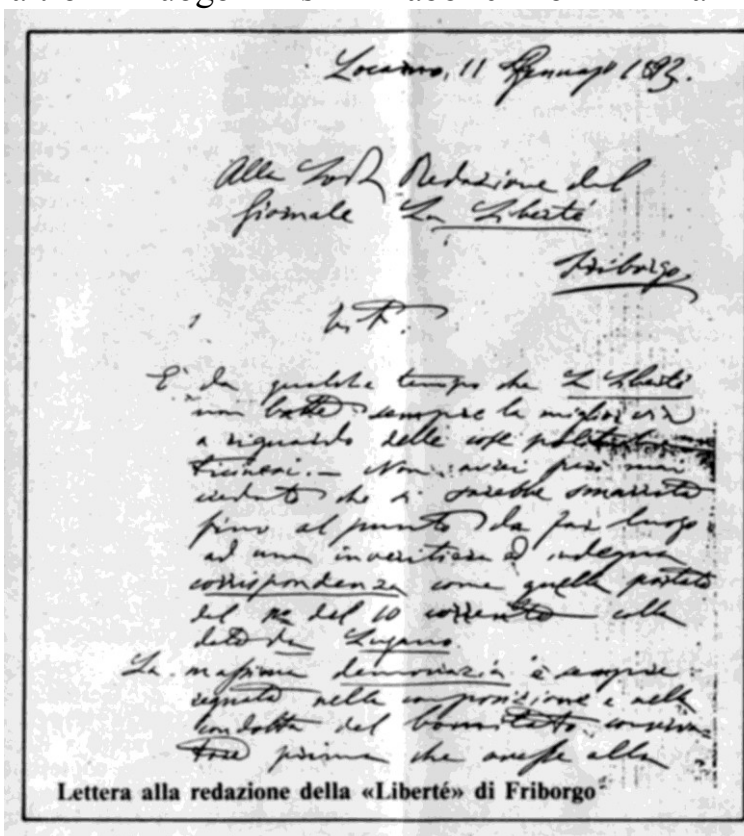 Locarno, 11 Gennajo 1893.
Alla Redazione del
Giornale La Liberté
Friborgo
È da qualche tempo che La Liberté
non batte sempre la miglior via
a riguardo delle cose politiche
ticinesi. — Non avrei però mai
creduto che si sarebbe smarrita
fino al punto da far luogo
ad una inveritiera ed indegna
corrispondenza come quella portata
dal No del 10 corrente colla
data da Lugano
La massima democrazia è sempre
regnata nella composizione e nella
condotta del Comitato conserva-
tore prima che avesse alla
Lettera alla redazione della «Liberté» di Friborgo